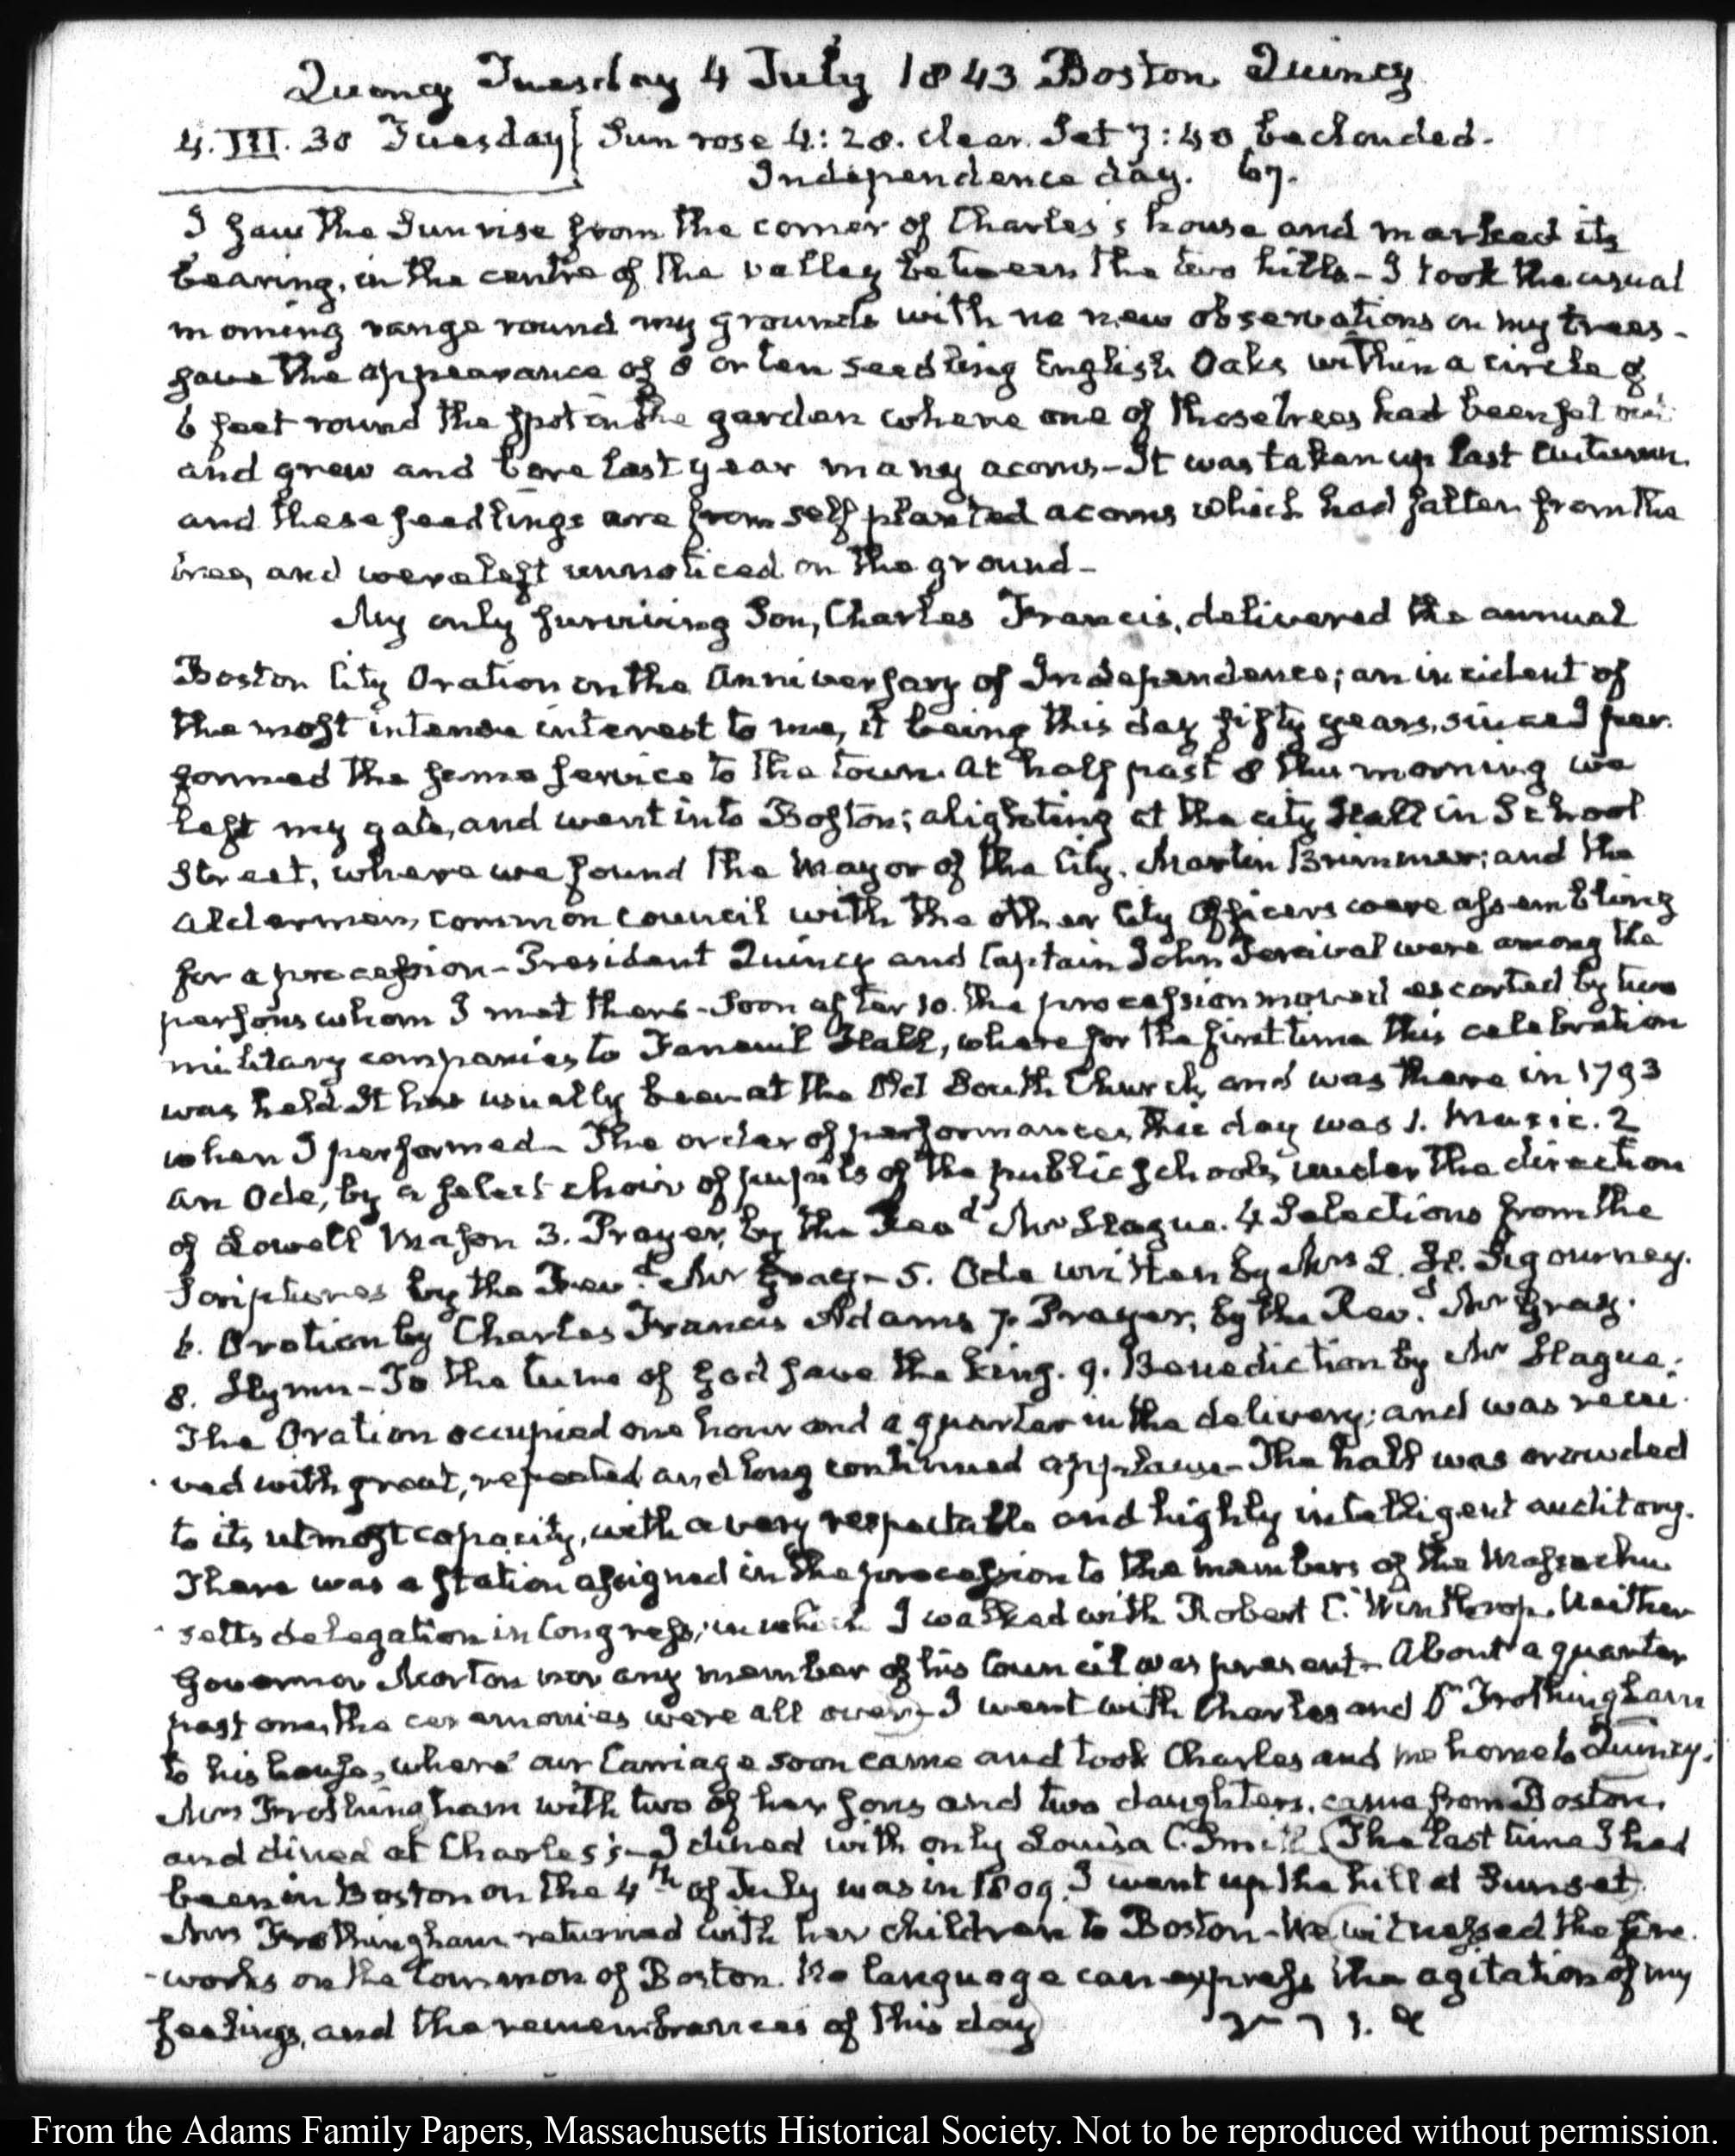 Quincy Tuesday 4 July 1843 Boston. Quincy
4. III. 30 Tuesday { Sun rose 4:28. clear. Set 7:40 beclouded.
Independence day. 67.
I saw the Sun rise from the corner of Charles's house and marked its
bearing, in the centre of the valley between the two hills – I took the usual
morning range round my grounds with no new observations on my trees –
save the appearance of 8 or ten seedling English Oaks within a circle of
6 feet round the spot in the garden where one of those trees had been set out
and grew and bore last year many acorns – It was taken up last Autumn
and these seedlings are from self planted acorns which had fallen from the
tree, and were left unnoticed on the ground –
My only surviving Son, Charles Francis, delivered the annual
Boston City Oration on the Anniversary of Independence; an incident of
the most intense interest to me, it being this day fifty years, since I per
formed the same service to the town. At half past 8 this morning we
left my gate, and went into Boston; alighting at the city Hall in School
Street, where we found the Mayor of the City, Martin Brimmer; and the
aldermen, common council with the other City Officers were assembling
for a procession – President Quincy and Captain John Percival were among the
persons whom I met there – Soon after 10. the procession moved escorted by two
military companies to Faneuil Hall, where for the first time this celebration
was held. It has usually been at the Old South Church, and was there in 1793
when I performed – The order of performances this day was 1. Music. 2
an Ode, by a select choir of pupils of the public schools, under the direction
of Lowell Mason 3. Prayer, by the Revd Mr Hague. 4 Selections from the
Scriptures by the Revd Mr Gray – 5. Ode written by Mrs L. H. Sigourney.
6. Oration by Charles Francis Adams 7. Prayer, by the Revd Mr Gray.
8. Hymn – To the tune of God save the King. 9. Benediction by Mr Hague.
The Oration occupied one hour and a quarter in the delivery; and was recei
ved with great, repeated and long continued applause – The hall was crowded
to its utmost capacity, with a very respectable and highly intelligent auditory.
There was a station assigned in the procession to the members of the Massachu
setts delegation in Congress; in which I walked with Robert C. Winthrop. Neither
Governor Morton nor any member of his Council was present – About a quarter
past one, the ceremonies were all over – I went with Charles and Dr Frothingham
to his house, where our Carriage soon came and took Charles and me home to Quincy.
Mrs Frothingham with two of her sons and two daughters, came from Boston,
and dined at Charles's – I dined with only Louisa C. Smith (The last time I had
been in Boston on the 4th of July was in 1809. I went up the hill at Sunset)
Mrs Frothingham returned with her children to Boston – We (witnessed the fire
works on the Common of Boston. No language can express the agitation of my
feelings, and the remembrances of this day)
From the Adams Family Papers, Massachusetts Historical Society. Not to be reproduced without permission.